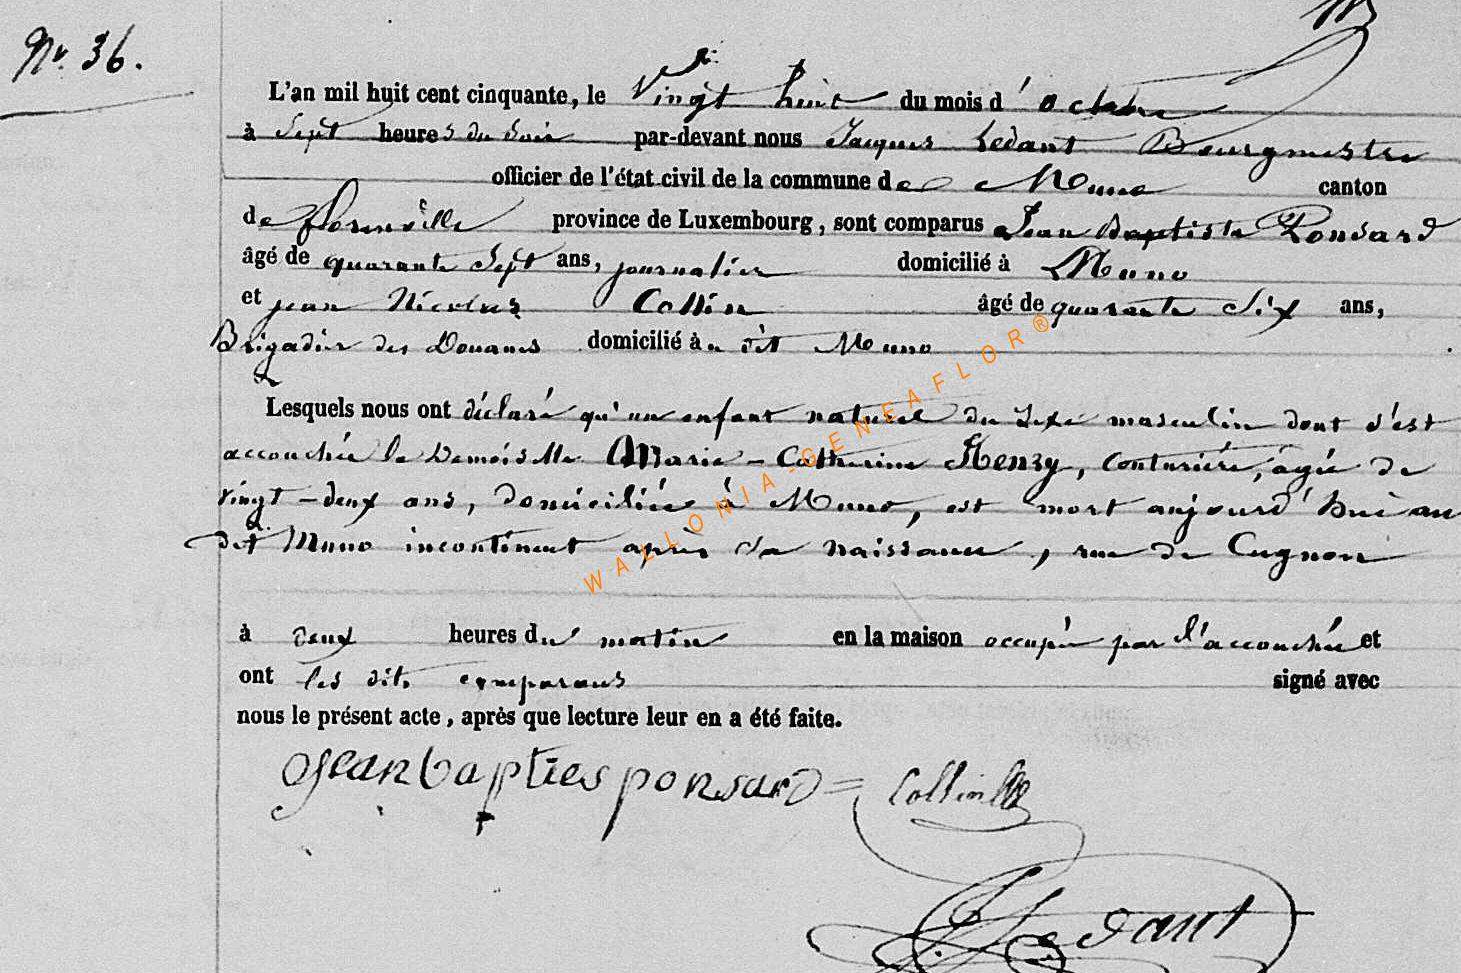 Nº. 36.
L'an mil huit cent cinquante, le Vingt huit du mois d'octobre
à Sept heures du Soir par-devant nous Jacques Ledant Bourgmestre
officier de l'état civil de la commune de Muno canton
de florenville province de Luxembourg, sont comparus Jean Baptiste Ponsard
âgé de quarante Sept ans, journalier domicilié à Muno
et jean Nicolas Collin âgé de quarante Six ans,
Brigadier des Douanes domicilié à dit Muno
Lesquels nous ont déclaré qu'un enfant naturel du Sexe masculin dont s'est
accouchée la Demoiselle Marie-Catherine Henry, Couturière, âgée de
vingt-deux ans, domiciliée à Muno, est mort aujourd'hui au
dit Muno incontinent après sa naissance, rue de Cugnon
à deux heures du matin en la maison occupée par l'accouchée et
ont les dits comparans signé avec
nous le présent acte, après que lecture leur en a été faite.
Jean bapties ponsard = Collin
Ledant
WALLONIA-GENEAFLOR®